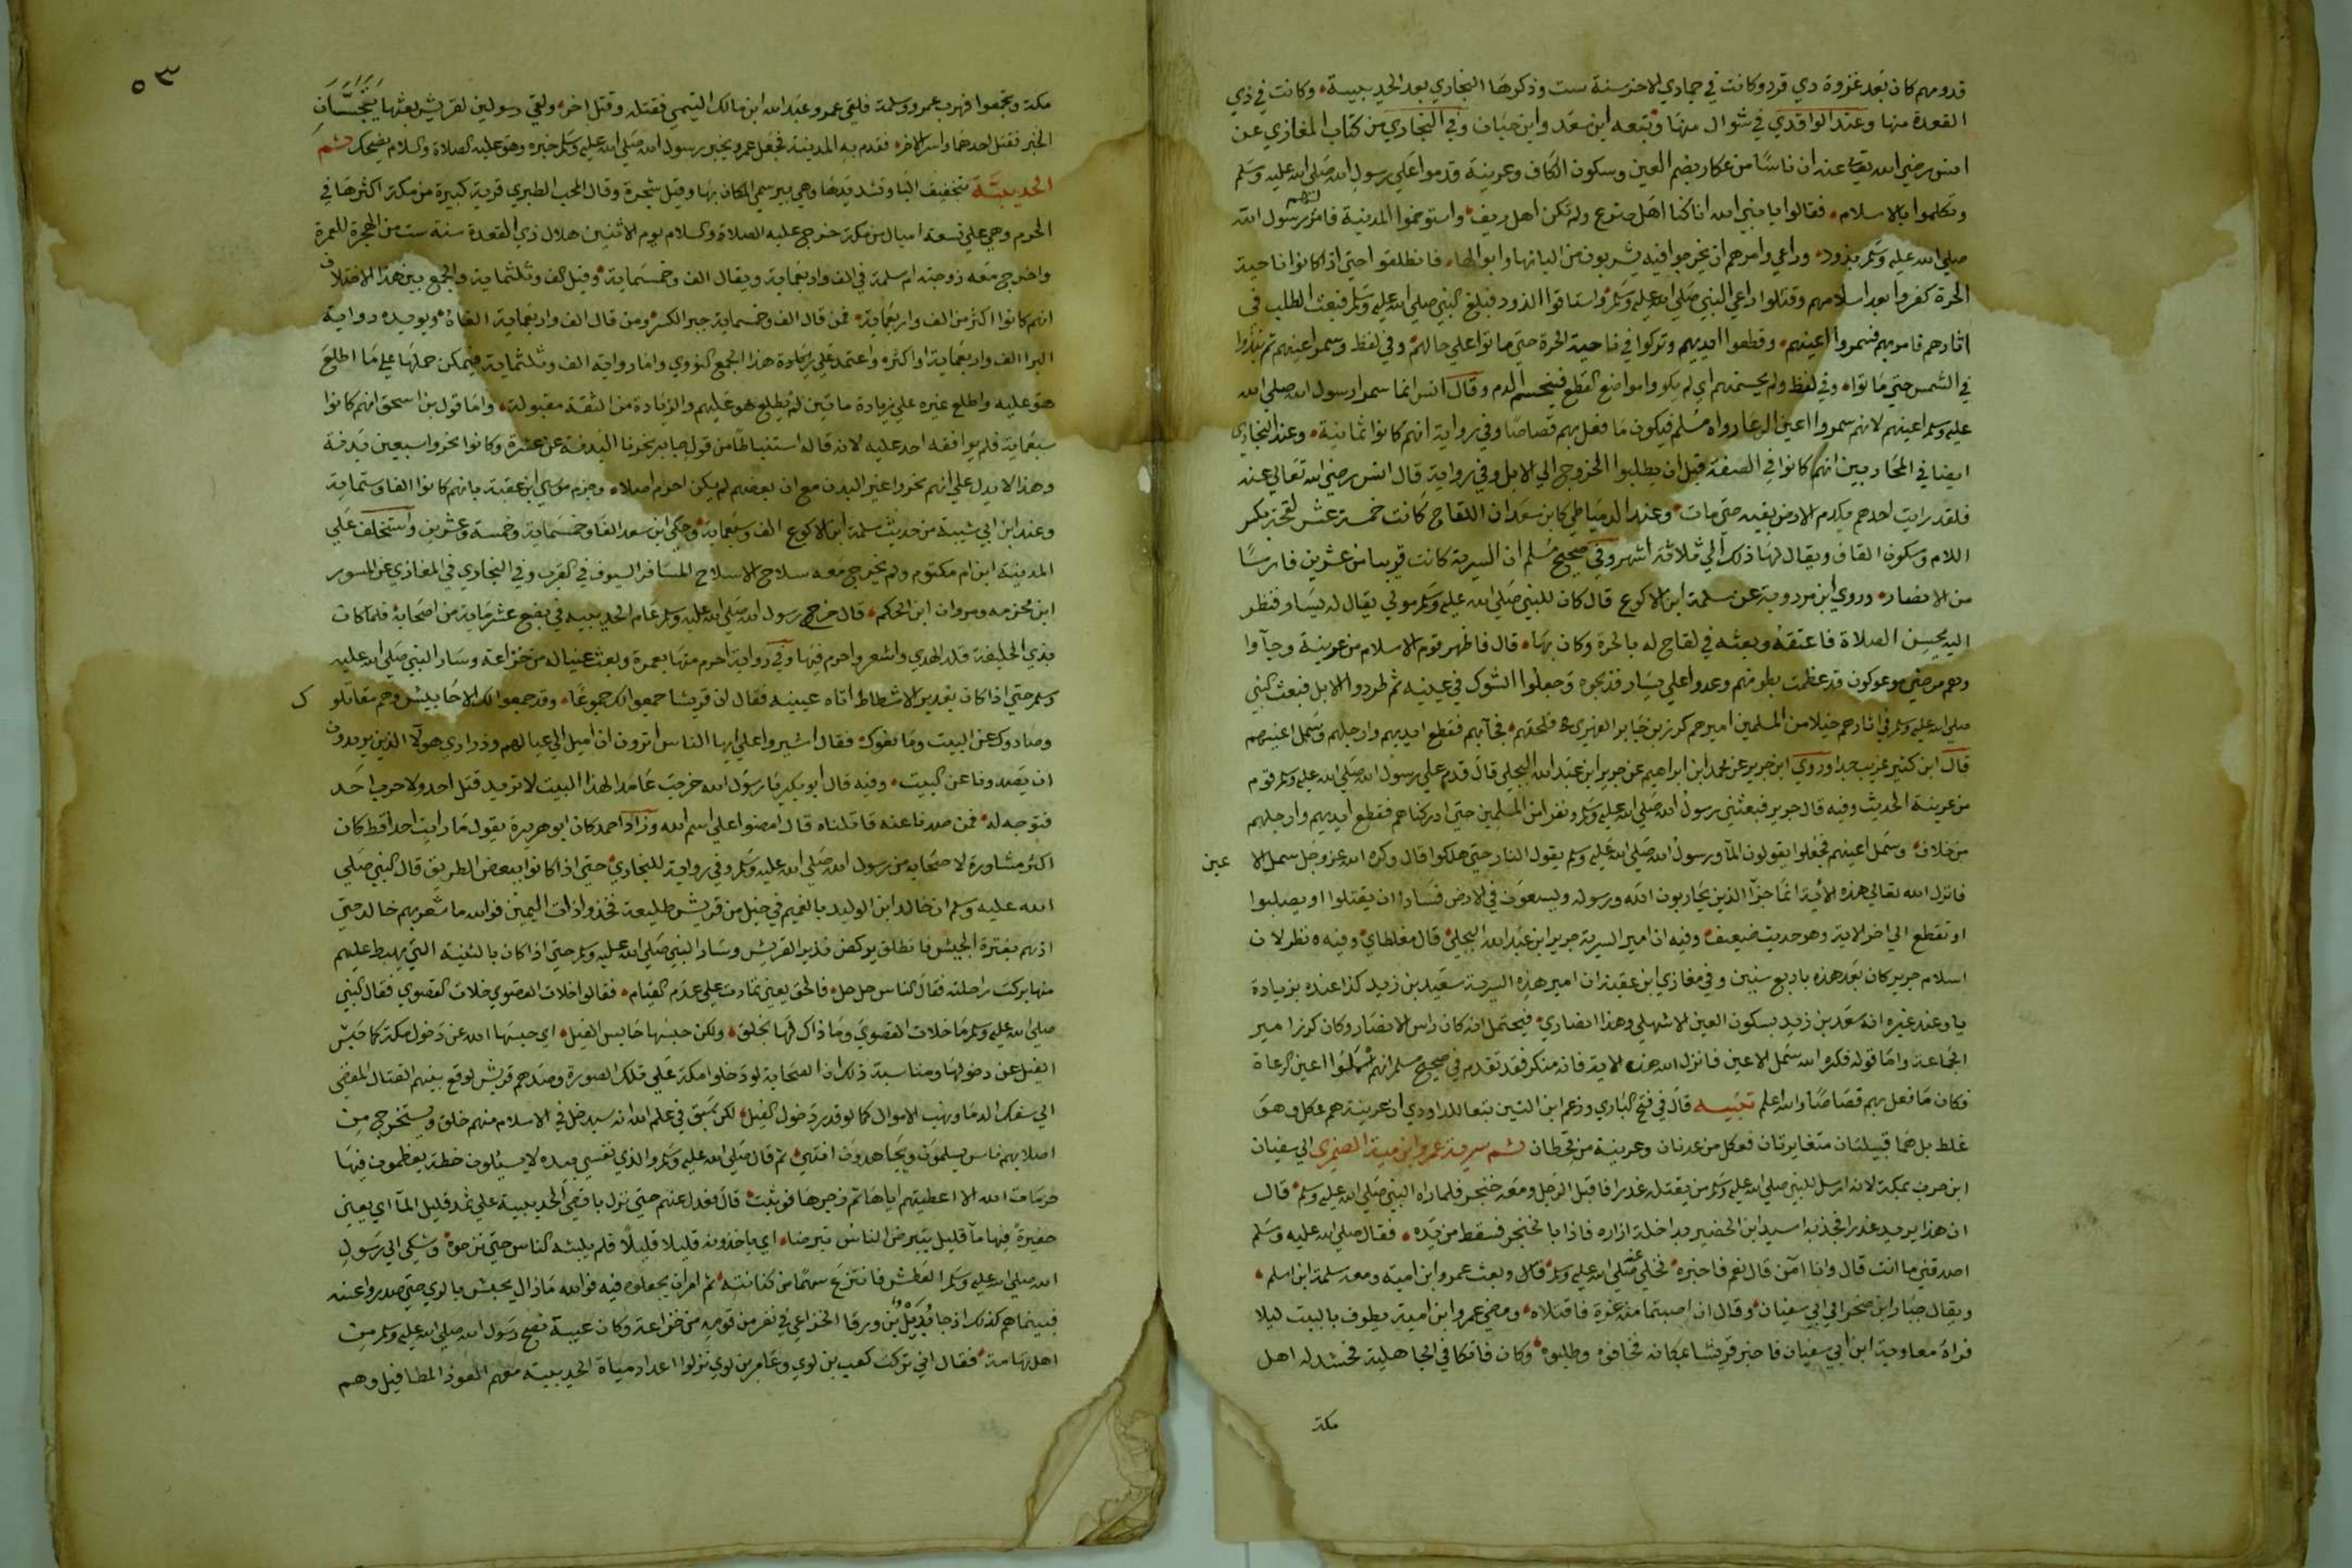 قدومهم كان بعد غزوة ذي قرد وكانت في جمادي الاخر سنة ست وذكرها البخاري بعد الحديبية وكانت في ذي
القعدة منها وعند الواقدي في شوال منها وتبعه ابن سعد وابن حبان وفي البخاري من كتاب المغازي عن
انس رضي الله تعا عنه ان ناسا من عكل بضم العين وسكون الكاف وعرينة قدموا علي رسول الله صلي الله عليه وسلم
وتكلموا بالاسلام فقالوا يا نبي الله انا كنا اهل ضرع ولم نكن اهل ريف واستوخموا المدينة فامر لهم رسول الله
صلي الله عليه وسلم بذود وراعي وامرهم ان يخرجوا فيه يشربون من البانها وابوالها فانطلقوا حتي اذا كانوا ناحية
الحرة كفروا بعد اسلامهم وقتلوا راعي النبي صلي الله عليه وسلم واستاقوا الذود فبلغ النبي صلي الله عليه وسلم فبعث الطلب في
اثارهم فامر بهم فسمروا اعينهم وقطعوا ايديهم وتركوا في ناحية الحرة حتي ماتوا علي حالهم وفي لفظ وسمر اعينهم ثم نبذوا
في الشمس حتي ماتوا وفي لفظ ولم يحسمهم اي لم يكووا مواضع القطع فينحسم الدم وقال انس انما سمر رسول الله صلي الله
عليه وسلم اعينهم لانهم سمروا اعين الرعا رواه مسلم فيكون ما فعل بهم قصاصا وفي رواية انهم كانوا ثمانية وعند البخاري
ايضا في المحاربين انهم كانوا في الصفة قبل ان يطلبوا الخروج الي الابل وفي رواية قال انس رضي الله تعالي عنه
فلقد رايت احدهم يكدم الارض بفيه حتي مات وعند الدمياطي كابن سعد ان اللقاح كانت خمسة عشر لقحة بكسر
اللام وسكون القاف ويقال لها ذلك الي ثلاثة اشهر وفي صحيح مسلم ان السرية كانت قريبا من عشرين فارسا
من الانصار وروي ابن مردوية عن سلمة ابن الاكوع قال كان للنبي صلي الله عليه وسلم مولي يقال له يسار فنظر
اليه يحسن الصلاة فاعتقه وبعثه في لقاح له بالحرة وكان بها قال فاظهر قوم الاسلام من عرينة وجآوا
وهم مرضي موعوكون قد عظمت بطونهم وعدوا علي يسار فذبحوه وجعلوا الشوك في عينيه ثم طردوا الابل فبعث النبي
صلي الله عليه وسلم في اثارهم خيلا من المسلمين اميرهم كرز بن جابر الفهري فلحقهم فجآ بهم فقطع ايديهم وارجلهم وسمل اعينهم
قال ابن كثير غريب جدا وروي ابن جرير عن محمد ابن ابراهيم عن جرير ابن عبد الله البجلي قال قدم علي رسول الله صلي الله عليه وسلم قوم
من عرينة الحديث وفيه قال جرير فبعثني رسول الله صلي الله عليه وسلم ونفر من المسلمين حتي ادركناهم فقطع ايديهم وارجلهم
من خلاف وسمل اعينهم فجعلوا يقولون المآ ورسول الله صلي الله عليه وسلم يقول النار حتي هلكوا قال وكره الله عز وجل سمل الا
عين
فانزل الله تعالي هذه الاية انما جزآ الذين يحاربون الله ورسوله ويسعون في الارض فسادا ان يقتلوا او يصلبوا
او تقطع الي اخر الاية وهو حديث ضعيف وفيه ان امير السرية جرير ابن عبد الله البجلي قال مغلطاي وفيه نظر لان
اسلام جرير كان بعد هذه باربع سنين وفي مغازي ابن عقبة ان امير هذه السرية سعيد بن زيد كذا عنده بزيادة
يا وعند غيره انه سعد بن زيد بسكون العين الاشهلي وهذا انصاري فيحتمل انه كان راس الانصار وكان كرز امير
الجماعة واما قوله فكره الله سمل الاعين فانزل الله هذه الاية فانه منكر فقد تقدم في صحيح مسلم انهم سملوا اعين الرعاة
فكان ما فعل بهم قصاصا والله اعلم تنبيه قال في فتح الباري وزعم ابن التين تبعا للداودي ان عرينة هم عكل وهو
غلط بل هما قبيلتان متغايرتان فعكل من عدنان وعرينة من قحطان ثم سرية عمرو ابن امية الضمري الي سفيان
ابن حرب بمكة لانه ارسل للنبي صلي الله عليه وسلم من يقتله غدرا فاقبل الرجل ومعه خنجر فلما راه النبي صلي الله عليه وسلم قال
ان هذا يريد غدرا فجذبه اسيد ابن الحضير بداخلة ازاره فاذا بالخنجر فسقط من يده فقال صلي الله عليه وسلم
اصدقني ما انت قال وانا آمن قال نعم فاخبره فخلي عنه صلي الله عليه وسلم قال وبعث عمرو ابن امية ومعه سلمة ابن اسلم
ويقال جبار ابن صخر الي ابي سفيان وقال ان اصبتما منه غرة فاقتلاه ومضي عمرو ابن امية يطوف بالبيت ليلا
فراه معاوية ابن ابي سفيان فاخبر قريشا بمكانه فخافوه وطلبوه وكان فاتكا في الجاهلية فحشد له اهل
مكة
٥٣
مكة وتجمعوا فهرب عمرو وسلمة فلقي عمرو عبد الله ابن مالك التيمي فقتله وقتل اخر ولقي رسولين لقريش بعثتهما يتجسسان
الخبر فقتل احدهما واسر الاخر فقدم به المدينة فجعل عمرو يخبر رسول الله صلي الله عليه وسلم خبره وهو عليه الصلاة والسلام يضحك ثم
الحديبية بتخفيف اليا وتشديدها وهي بير سمي المكان بها وقيل شجرة وقال المحب الطبري قرية كبيرة من مكة اكثرها في
الحرم وهي علي تسعة اميال من مكة خرج عليه الصلاة والسلام يوم الاثنين هلال ذي القعدة سنة ست من الهجرة للعمرة
واخرج معه زوجته ام سلمة في الف واربعماية ويقال الف وخمسماية وقيل الف وثلثماية والجمع بين هذا الاختلاف
انهم كانوا اكثر من الف واربعماية فمن قال الف وخمسماية جبر الكسر ومن قال الف واربعماية الغاه ويويده رواية
البرا الف واربعماية او اكثر واعتمد علي هذا الجمع النووي واما رواية الف وثلثماية فيمكن حملها علي ما اطلع
هو عليه واطلع غيره علي زيادة مايتين لم يطلع هو عليهم والزيادة من الثقة مقبولة واما قول بن اسحق انهم كانوا
سبعماية فلم يوافقه احد عليه لانه قاله استنباطا من قول جابر نحرنا البدنة عن عشرة وكانوا نحروا سبعين بدنة
وهذا لا يدل علي انهم نحروا غير البدن مع ان بعضهم لم يكن احرم اصلا وجزم موسي ابن عقبة بانهم كانوا الفا وستماية
وعند ابن ابي شيبة من حديث سلمة ابن الاكوع الف وسبعماية وحكي ابن سعد الفا وخمسماية وخمسة وعشرين واستخلف علي
المدينة ابن ام مكتوم ولم يخرج معه سلاح الا سلاح المسافر السيوف في القرب وفي البخاري في المغازي عن المسور
ابن مخرمه ومروان ابن الحكم قال خرج رسول الله صلي الله عليه وسلم عام الحديبيه في بضع عشر ماية من اصحابه فلما كان
بذي الحليفة قلد الهدي واشعر واحرم فيها وفي رواية احرم منها بعمرة وبعث عينا له من خزاعة وسار النبي صلي الله عليه
وسلم حتي اذا كان بغدير الاشطاط اتاه عيينه فقال ان قريشا جمعوا لك جموعا وقد جمعوا لك الاحابيش وهم مقاتلو
ك
وصادوك عن البيت ومانعوك فقال اشيروا علي ايها الناس اترون ان اميل الي عيالهم وذراري هولآ الذين يريدون
ان يصدونا عن البيت وفيه قال ابو بكر يا رسول الله خرجت عامدا لهذا البيت لا تريد قتل احد ولا حرب احد
فتوجه له فمن صدنا عنه قاتلناه قال امضوا علي اسم الله وزاد احمد كان ابو هريرة يقول ما رايت احدا قط كان
اكثر مشاورة لاصحابه من رسول الله صلي الله عليه وسلم وفي رواية للبخاري حتي اذا كانوا ببعض الطريق قال النبي صلي
الله عليه وسلم ان خالد ابن الوليد بالغميم في خيل من قريش طليعة فخذوا ذات اليمين فوالله ما شعر بهم خالد حتي
اذ هم بقترة الجيش فانطلق يركض نذيرا لقريش وسار النبي صلي الله عليه وسلم حتي اذا كان بالثنية التي يهبط عليهم
منها بركت راحلته فقال الناس حل حل فالحت يعني تمادت علي عدم القيام فقالوا خلات القصوي خلات القصوي فقال النبي
صلي الله عليه وسلم ما خلات القصوي وما ذاك لها بخلق ولكن حبسها حابس الفيل اي حبسها الله عن دخول مكة كما حبس
الفيل عن دخولها ومناسبة ذلك ان الصحابة لو دخلوا مكة علي تلك الصورة وصدهم قريش لوقع بينهم القتال المفضي
الي سفك الدما ونهب الاموال كما لو قدر دخول الفيل لكن سبق في علم الله انه سيدخل في الاسلام منهم خلق ويستخرج من
اصلابهم ناس يسلمون ويجاهدون انتهي ثم قال صلي الله عليه وسلم والذي نفسي بيده لا يسئلون خطة يعظمون فيها
حرمات الله الا اعطيتهم اياها ثم زجرها فوثبت قال فعدل عنهم حتي نزل باقصي الحديبية علي ثمد قليل المآ اي يعني
حفيرة فيها مآ قليل يتبرض الناس تبرضا اي ياخذونه قليلا قليلا فلم يلبثه الناس حتي نزحوه وشكي الي رسول
الله صلي الله عليه وسلم العطش فانتزع سهما من كنانته ثم امر ان يجعلوه فيه فوالله ما زال يجيش بالري حتي صدروا عنه
فبينما هم كذلك اذ جا بديل بن ورقا الخزاعي في نفر من قومه من خزاعة وكان عيبة نصح رسول الله صلي الله عليه وسلم من
اهل تهامة فقال اني تركت كعب بن لوي وعامر بن لوي نزلوا اعداد مياة الحديبية معهم العوذ المطافيل وهم